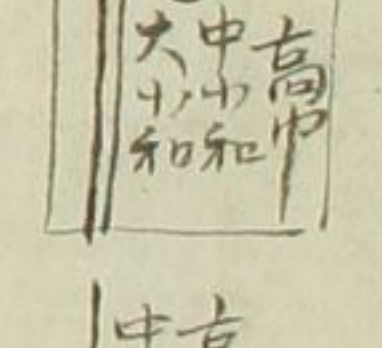 高
中小和
大小和
中